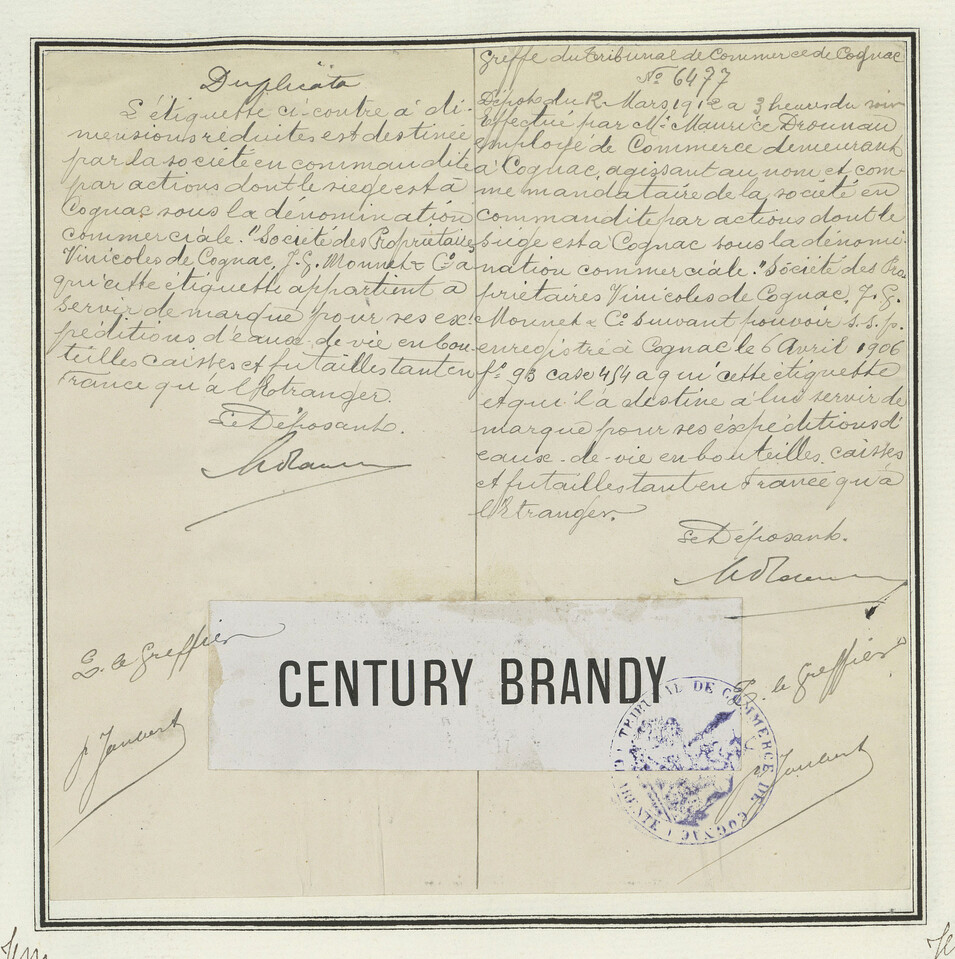 Duplicata
L'étiquette ci-contre à di-
mensions réduites est destinée
par la société en commandite
par actions dont le siège est à
Cognac sous la dénomination
commerciale. "Société des Propriétaires
Vinicoles de Cognac, J. G. Monnet & Cie a
qui cette étiquette appartient à
servir de marque pour ses ex-
péditions d'eaux-de-vie en bou-
teilles caisses et futailles tant en
France qu'à l'Etranger.
Le Déposant.
Greffe du Tribunal de Commerce de Cognac
No 6477
Dépôt du 12 Mars 1912 a 3 heures du soir
Effectué par Mr Maurice Drounau
employé de Commerce demeurant
à Cognac, agissant au nom et com-
me mandataire de la société en
commandite par actions dont le
siège est a Cognac sous la dénomi-
nation commerciale. "Société des Pro
priétaires Vinicoles de Cognac, J. G.
Monnet & Co suivant pouvoir s.s.p.
enregistré à Cognac le 6 Avril 1906
fo 93 case 454 a qui cette étiquette
et qu'il a destine à lui servir de
marque pour ses expéditions d'
eaux-de-vie en bouteilles, caisses
et futailles tant en France qu'à
l'Etranger.
Le Déposant.
CENTURY BRANDY
le Greffier
p. Jaubert
le Greffier
p. Jaubert
TRIBUNAL DE COMMERCE DE COGNAC